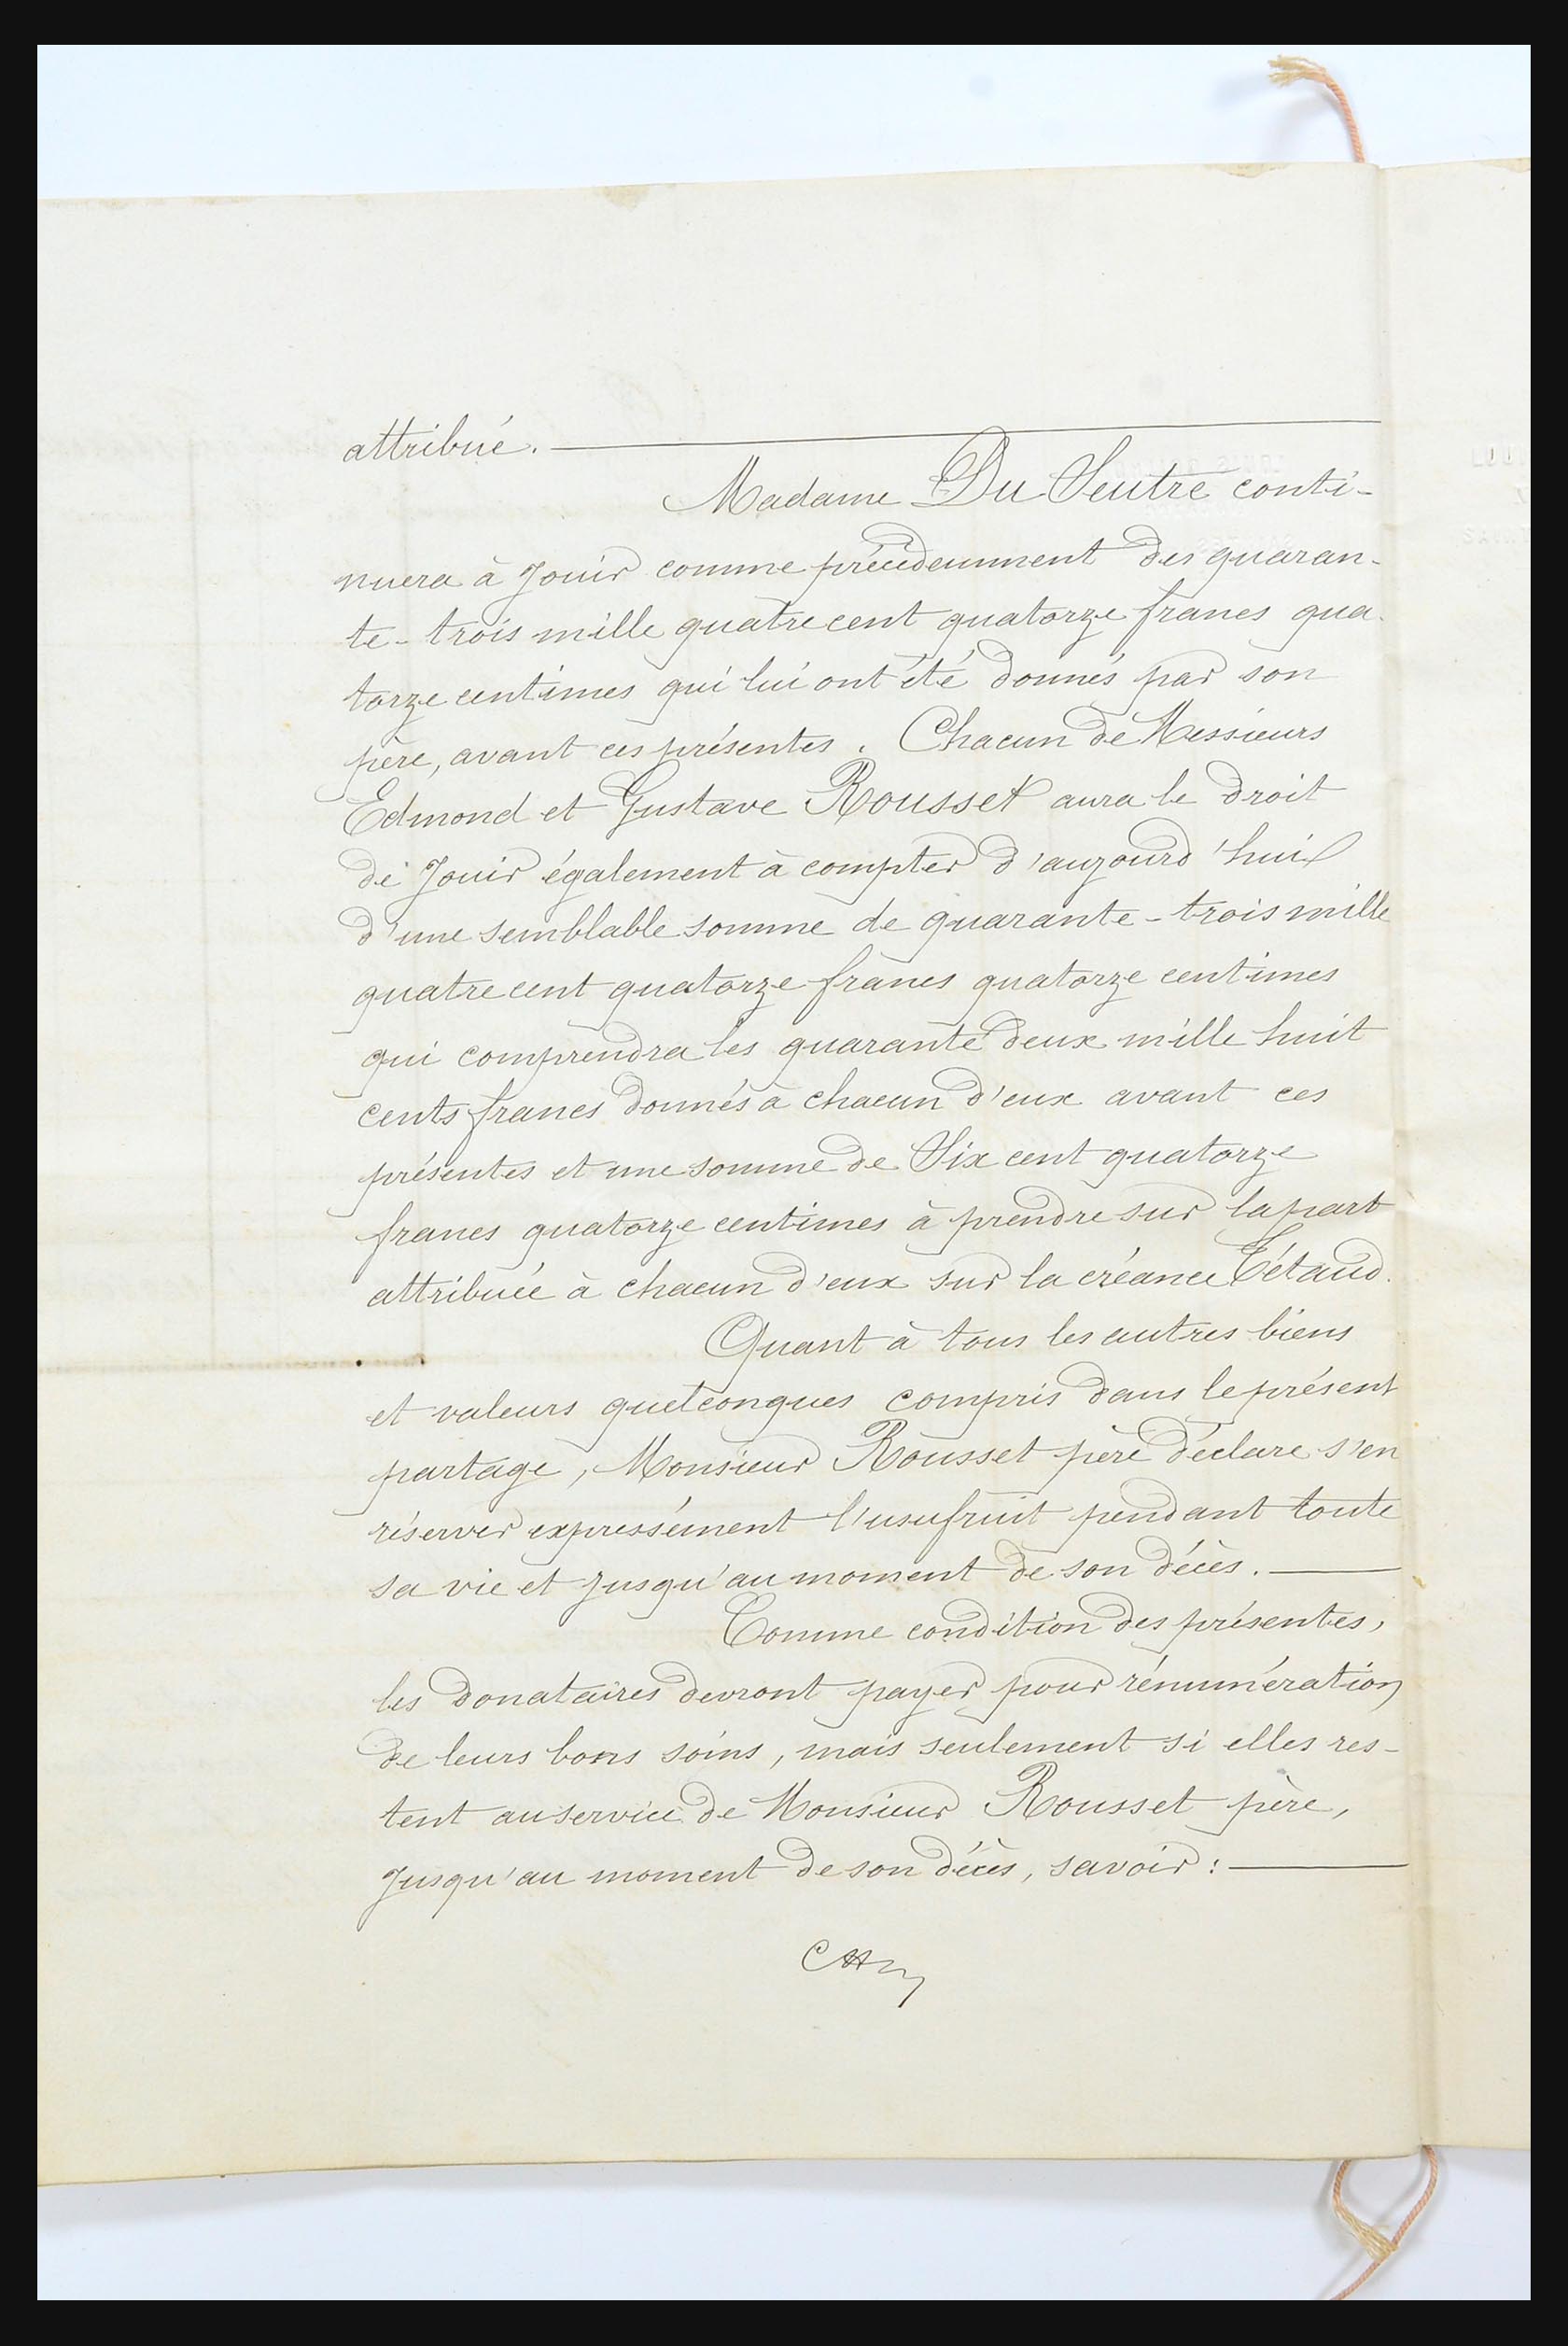 attribué.
Madame Du Seutre conti-
nuera à Jouir comme précédemment des quaran-
te-trois mille quatre cent quatorze francs qua-
torze centimes qui lui ont été donnés par son
père, avant ces présentes. Chacun de Messieurs
Edmond et Gustave Rousset aura le droit
de Jouir également à compter d'aujourd'hui
d'une semblable somme de quarante-trois mille
quatre cent quatorze francs quatorze centimes
qui comprendra les quarante deux mille huit
cents francs donnés à chacun d'eux avant ces
présentes et une somme de Six cent quatorze
francs quatorze centimes à prendre sur la part
attribuée à chacun d'eux sur la créance Tétaud.
Quant à tous les autres biens
et valeurs quelconques compris dans le présent
partage, Monsieur Rousset père déclare s'en
réserver expressément l'usufruit pendant toute
sa vie et Jusqu'au moment de son décès.
Comme condition des présentes,
les donataires devront payer pour rénumération
de leurs bons soins, mais seulement si elles res-
tent au service de Monsieur Rousset père,
Jusqu'au moment de son décès, savoir :